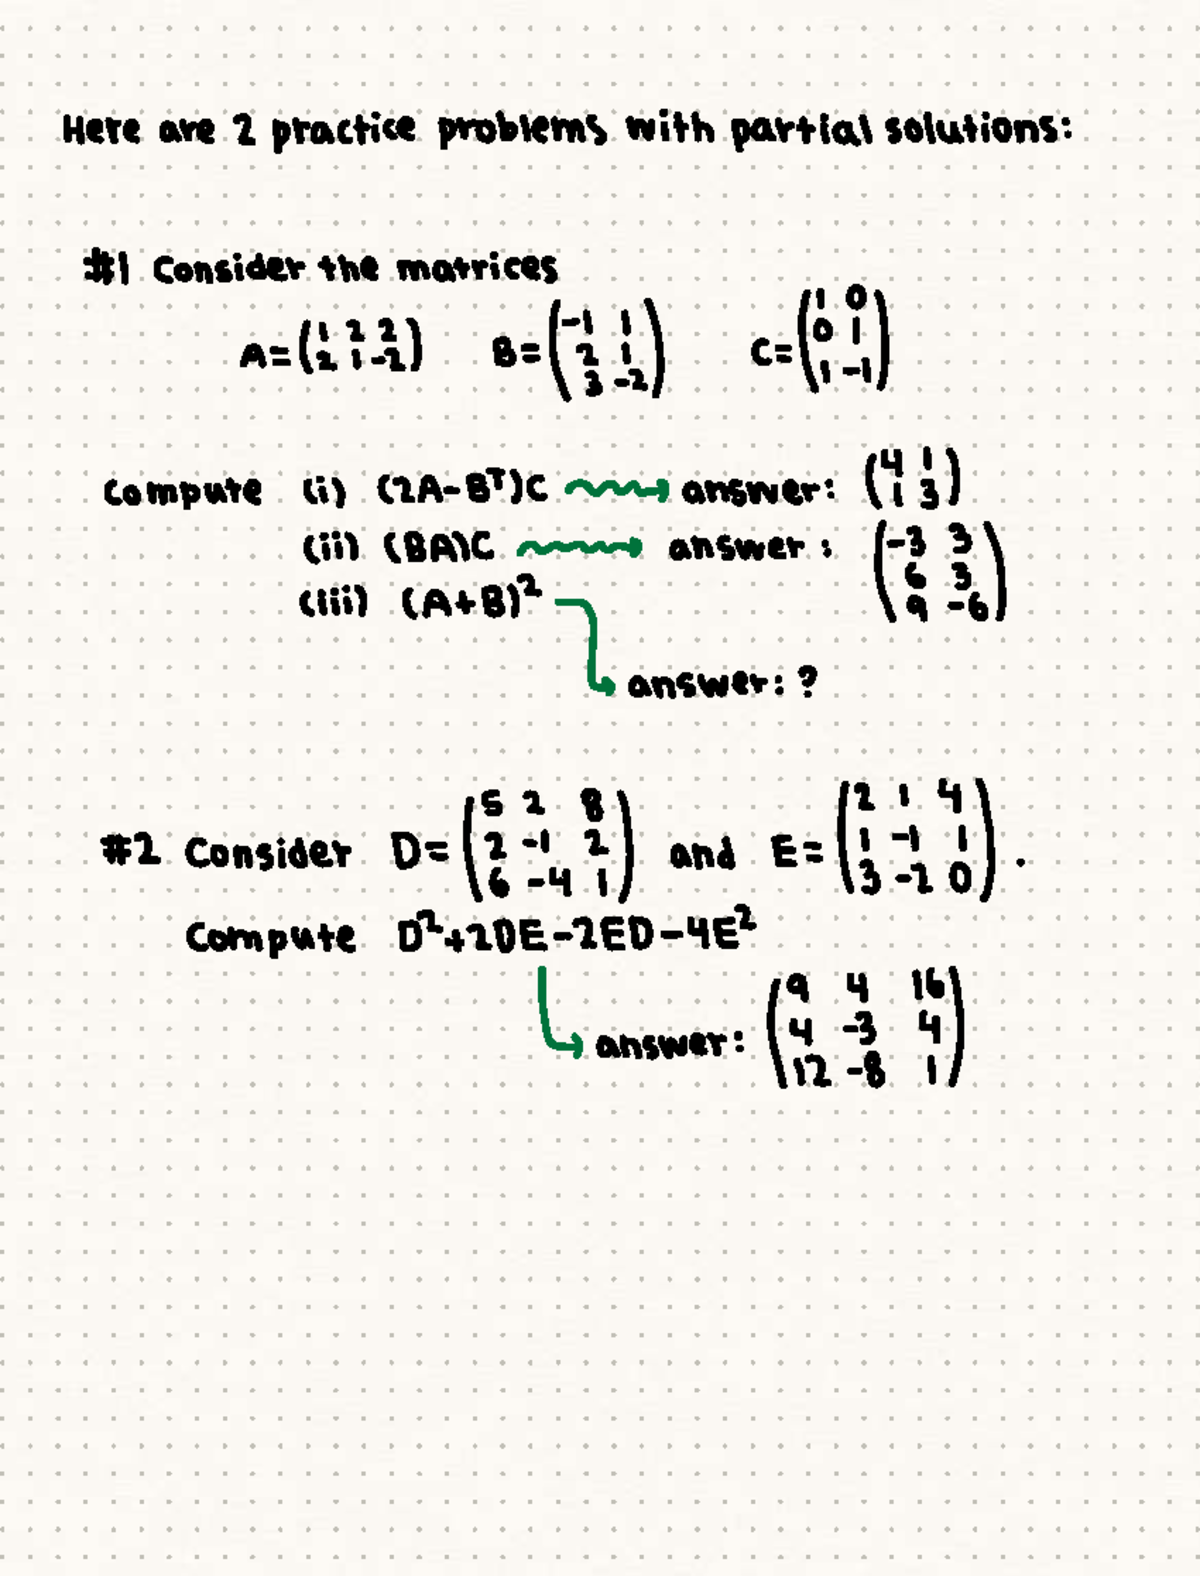 Here are 2 practice problems with partial solutions:
#1 Consider the matrices
A=(1 2 2; 2 1 -2) B=(-1 1; 2 1; 3 -2) C=(1 0; 0 1; 1 -1)
Compute (i) (2A-Bᵀ)C answer: (4 1; 1 3)
(ii) (BA)C answer: (-3 3; 6 3; 9 -6)
(iii) (A+B)²
answer: ?
#2 Consider D=(5 2 8; 2 -1 2; 6 -4 1) and E=(2 1 4; 1 -1 1; 3 -2 0).
Compute D²+2DE-2ED-4E²
answer: (9 4 16; 4 -3 4; 12 -8 1)